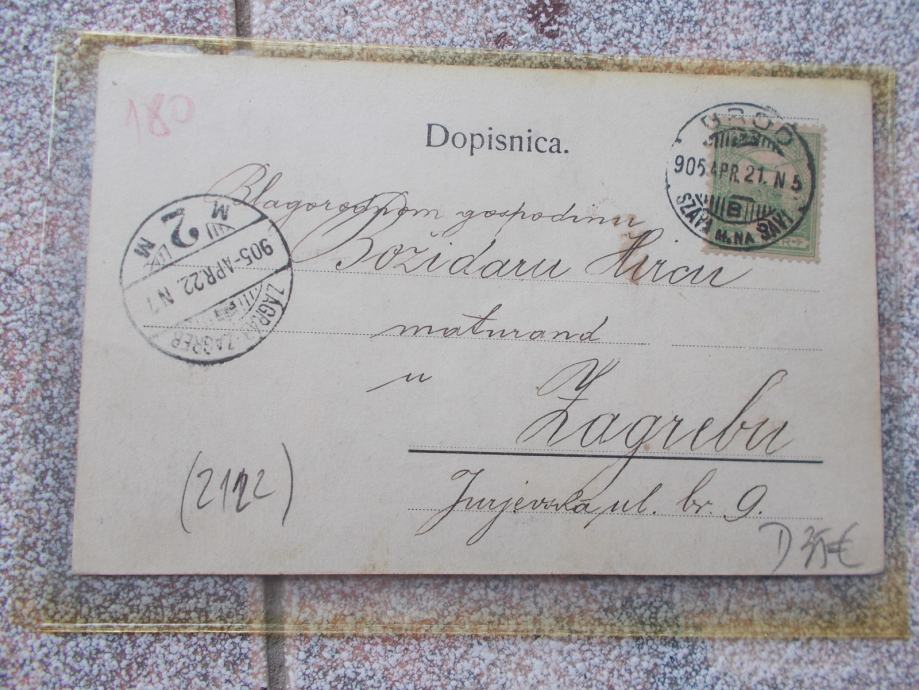 180
Dopisnica.
BROD
905 APR. 21. N 5
SZÁVA M. NA SAVI
B
Blagorodnom gospodinu
Božidaru Hircu
M 2 M
905-APR. 22. N 7
ZÁGRÁB-ZAGREB
maturand
u
Zagrebu
(2122)
Jurjevska ul. br. 9.
D 35€